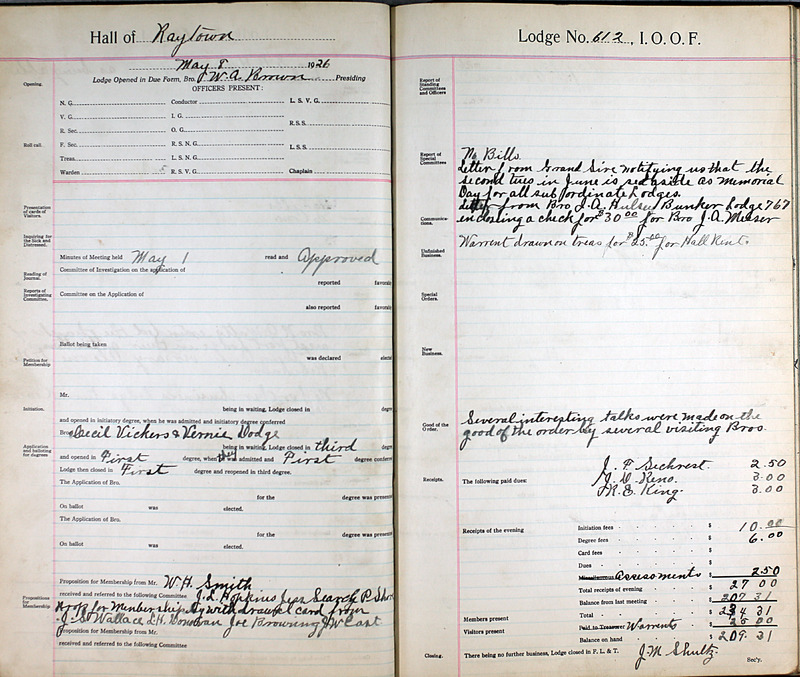 Hall of Raytown
May 8 1926
Opening.
Lodge Opened in Due Form, Bro. J. W. A. Brown Presiding
OFFICERS PRESENT:
N. G. Conductor L. S. V. G.
V. G. I. G.
R. Sec. O. G. R.S.S.
Roll call.
F. Sec. R. S. N. G. L.S.S.
Treas. L. S. N. G.
Warden R. S. V. G. Chaplain
Presentation of cards of Visitors.
Inquiring for the Sick and Distressed.
Minutes of Meeting held May 1 read and Approved
Reading of Journal.
Committee of Investigation on the application of
reported favorab
Reports of Investigating Committee.
Committee on the Application of
also reported favorab
Ballot being taken
Petition for Membership
was declared elected
Mr.
Initiation.
being in waiting, Lodge closed in degre
and opened in initiatory degree, when he was admitted and initiatory degree conferred
Bro. Cecil Vickers & Vernie Dodge
Application and balloting for degrees
being in waiting, Lodge closed in third degre
and opened in First degree, when they admitted and First degree conferre
Lodge then closed in First degree and reopened in third degree.
The Application of Bro.
for the degree was presente
On ballot was elected.
The Application of Bro.
for the degree was presente
On ballot was elected.
Proposition for Membership from Mr. W. H. Smith
Propositions for Membership.
received and referred to the following Committee J. L. Hopkins Search P. Short
Prop for Membership by withdrawel card from
J. S. Wallace L.H. Donovan Joe Browning J W Cast
Proposition for Membership from Mr.
received and referred to the following Committee
Lodge No. 612, I. O. O. F.
Report of Standing Committees and Officers
Report of Special Committees
No Bills
Letter from Grand Sire notifying us that the
second tues in June is sed aside as Memorial
Day for all subordinate Lodges.
Letter from Bro J.A. Hulsey Bunker Lodge 767
Communications.
enclosing a check for $30 00 for Bro J.A. Melser
Warrent drawn on treas for $25.00 for Hall Rent.
Unfinished Business.
Special Orders.
New Business.
Good of the Order.
Several interesting talks were made on the
good of the order by several visiting Bros.
J. F. Sechrest. 2.50
Receipts.
The following paid dues: Y. D. Reno. 3.00
R. E. King. 3.00
Receipts of the evening
Initiation fees $ 10.00
Degree fees $ 6.00
Card fees $
Dues $
Miscellaneous Assessments $ 2 50
Total receipts of evening $ 27 00
Balance from last meeting $ 207 31
Members present
Total $ 234 31
Visitors present
Paid to Treasurer Warrents $ 25 00
Balance on hand $ 209 31
Closing.
There being no further business, Lodge closed in F. L. & T. J. M Shultz. Sec'y.